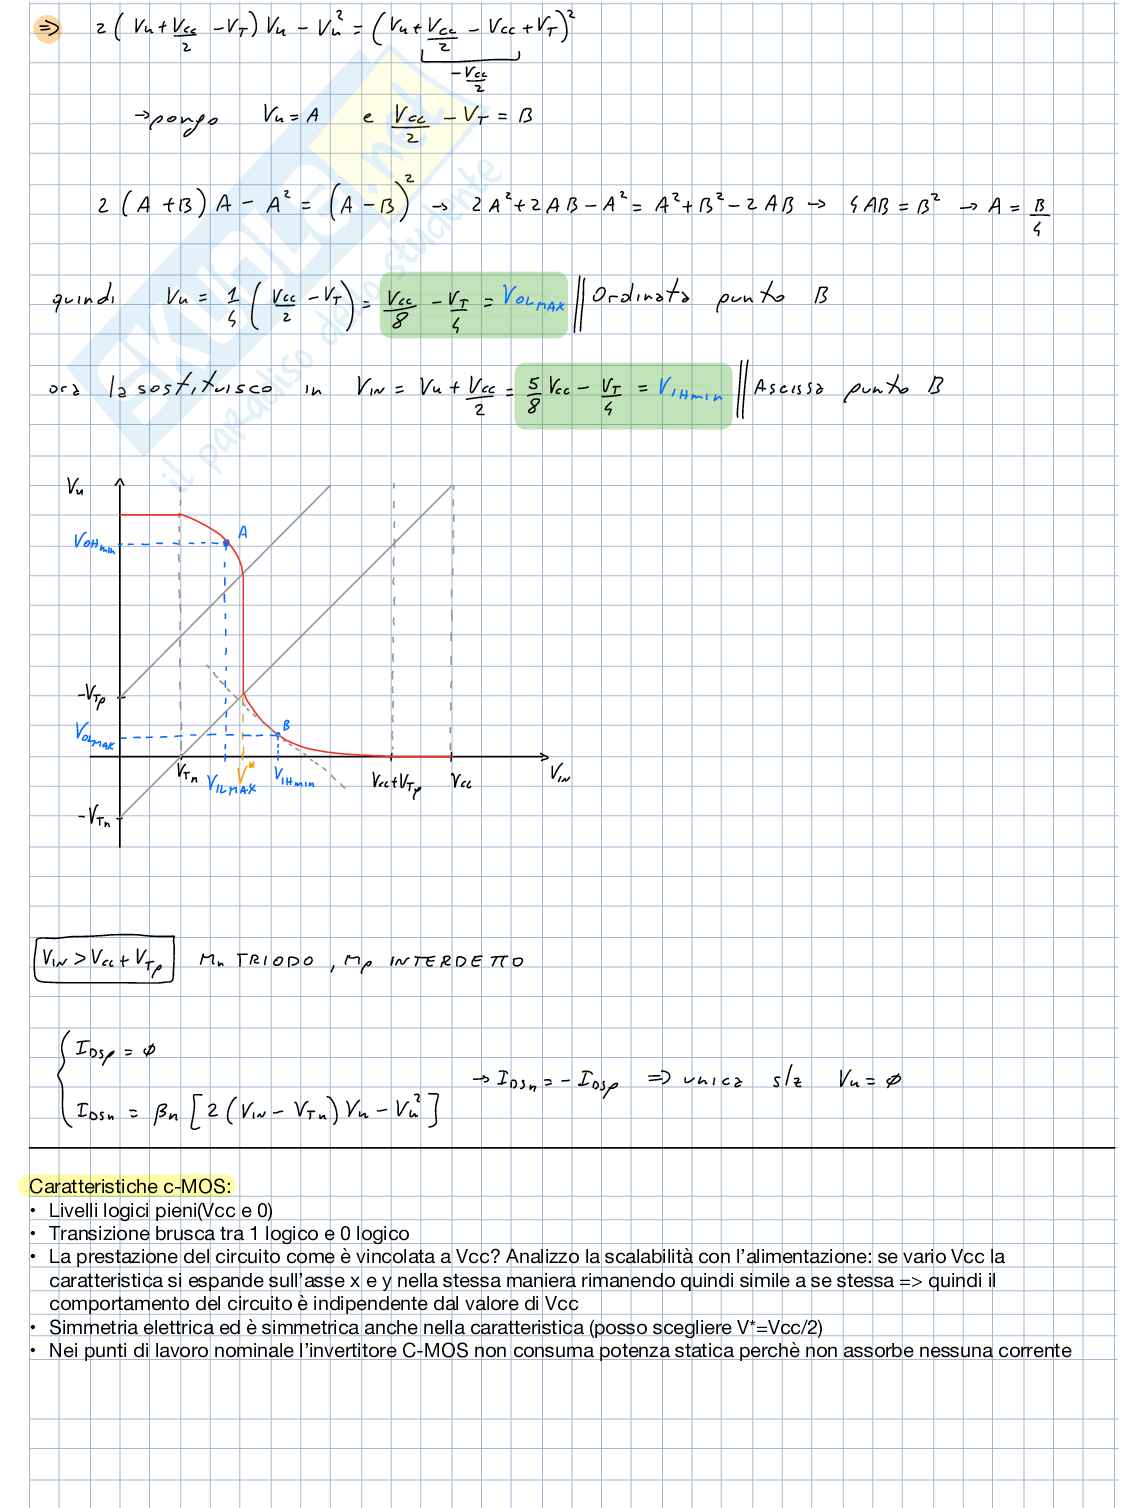 => 2(Vu + Vcc/2 - VT)Vu - Vu² = (Vu + Vcc/2 - Vcc + VT)²
-Vcc/2
→ pongo Vu = A e Vcc/2 - VT = B
2(A+B)A - A² = (A-B)² → 2A²+2AB-A² = A²+B²-2AB → 4AB = B² → A = B/4
quindi Vu = 1/4 (Vcc/2 - VT) = Vcc/8 - VT/4 = VOLMAX || Ordinata punto B
ora la sostituisco in VIN = Vu + Vcc/2 = 5/8 Vcc - VT/4 = VIHmin || Ascissa punto B
Vu
VOHmin
A
-VTp
VOLMAX
B
VTn VILMAX V* VIHmin Vcc+VTp Vcc VIN
-VTn
VIN > Vcc + VTp Mn TRIODO, Mp INTERDETTO
IDSp = ø
→ IDSn = - IDSp => unica s/z Vu = ø
IDSn = βn [2(VIN - VTn)Vu - Vu²]
Caratteristiche c-MOS:
• Livelli logici pieni(Vcc e 0)
• Transizione brusca tra 1 logico e 0 logico
• La prestazione del circuito come è vincolata a Vcc? Analizzo la scalabilità con l'alimentazione: se vario Vcc la
caratteristica si espande sull'asse x e y nella stessa maniera rimanendo quindi simile a se stessa => quindi il
comportamento del circuito è indipendente dal valore di Vcc
• Simmetria elettrica ed è simmetrica anche nella caratteristica (posso scegliere V*=Vcc/2)
• Nei punti di lavoro nominale l'invertitore C-MOS non consuma potenza statica perchè non assorbe nessuna corrente
SKUOLA.net
il paradiso dello studente